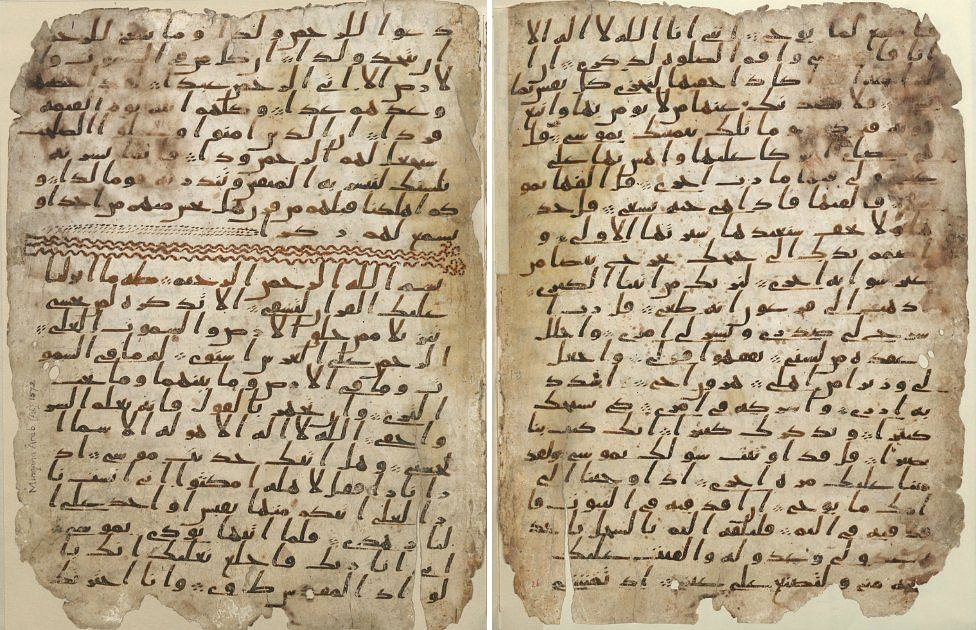 دعوا للرحمن ولدا وما ينبغي للرحمن
ان يتخذ ولدا ان كل من في السموت وا
لارض الا اتي الرحمن عبدا لقد احصيهم
وعدهم عدا وكلهم اتيه يوم القيمة
فردا ان الذين امنوا وعملوا الصلحت
سيجعل لهم الرحمن ودا فانما يسرنه
بلسنك لتبشر به المتقين وتنذر به قوما لدا و
كم اهلكنا قبلهم من قرن هل تحس منهم من احد او
تسمع لهم ركزا
بسم الله الرحمن الرحيم طه ما انزلنا
عليك القران لتشقى الا تذكرة لمن يخشى
تنزيلا ممن خلق الارض والسموت العلى
الرحمن على العرش استوى له ما في السمو
ت وما في الارض وما بينهما وما تحت
الثرى وان تجهر بالقول فانه يعلم السر
واخفى الله لا اله الا هو له الاسما ا
لحسنى وهل اتيك حديث موسى اذ
را نارا فقل لاهله امكثوا اني انست نا
را لعلي اتيكم منها بقبس او اجد على ا
لنار هدى فلما اتيها نودي يموسى
اني انا ربك فاخلع نعليك انك با
لواد المقدس طوى وانا اخترتك
Mingana Arab 1572
فاستمع لما يوحى انني انا الله لا اله الا
انا فا واقم الصلوة لذكري ان ا
كاد اخفيها لتجزى كل نفس بما
فلا يصدنك عنها من لا يومن بها واتبع
هويه فتردى وما تلك بيمينك يموسى قل
هي عصاي عليها واهش بها على
غنمي ولي فيها مارب اخرى قل القها يمو
سى فالقيها فاذا هي حية تسعى قل خذ
ها ولا تخف سنعيدها سيرتها الاولى و
اضمم يدك الى جنحك تخرج بيضا من
غير سو اية اخرى لنريك من ايتنا الكبرى
اذهب الى فرعون انه طغى قل رب ا
شرح لي صدري ويسر لي امري واحلل
عقدة من لسني يفقهوا قولي واجعل
لي وزيرا من اهلي هرون اخي اشدد
به ازري واشركه في امري كي نسبحك
كثيرا ونذكرك كثيرا انك كنت بنا
بصيرا قل قد اوتيت سولك يموسى ولقد
مننا عليك مرة اخرى اذ اوحينا الى
امك ما يوحى ان اقذفيه في التبوت فا
قذفيه في اليم فليلقه اليم بالسحل ياخذه
عدو لي وعدو له والقيت عليك
محبة مني ولتصنع على عيني اذ تمشي